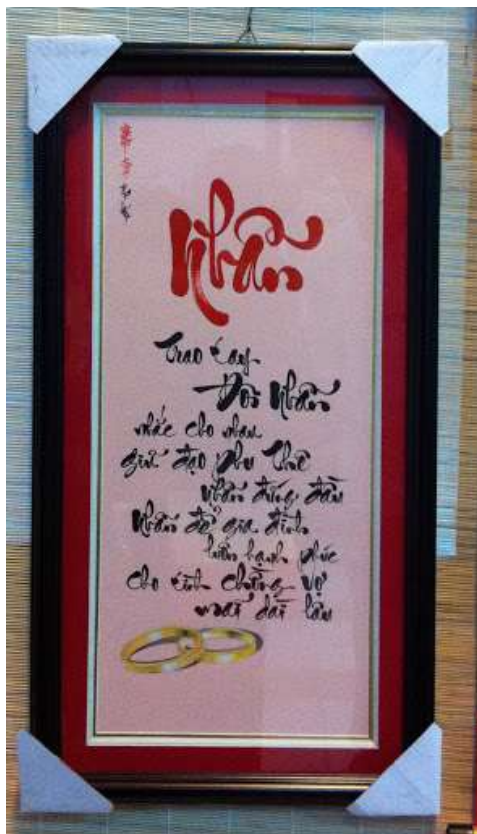 Nhẫn
Trao tay
Đôi Nhẫn
nhắc cho nhau
giữ đạo phu thê
nhẫn đứng đầu
Nhẫn để gia đình
luôn hạnh phúc
cho tình chồng vợ
mãi dài lâu